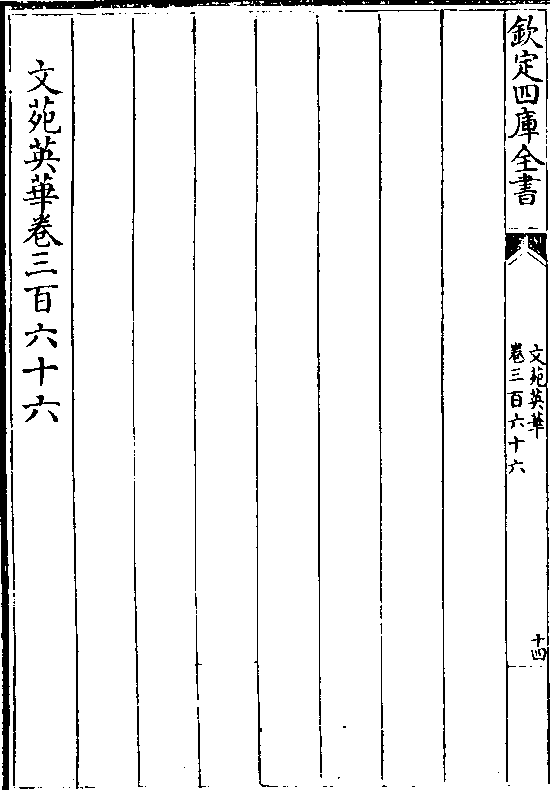 欽定四庫全書
文苑英華
卷三百六十六
十四
文苑英華卷三百六十六